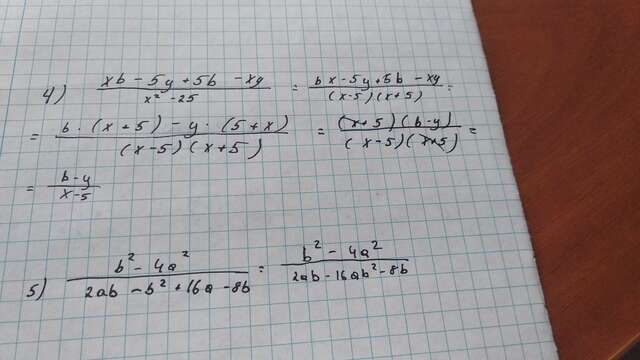 4) (xb - 5y + 5b - xy)/(x² - 25) = (bx - 5y + 5b - xy)/((x-5)(x+5)) =
= (b · (x + 5) - y · (5 + x))/((x-5)(x+5)) = ((x+5)(b-y))/((x-5)(x+5)) =
= (b - y)/(x - 5)
5) (b² - 4a²)/(2ab - b² + 16a - 8b) = (b² - 4a²)/(2ab - 16ab² - 8b)